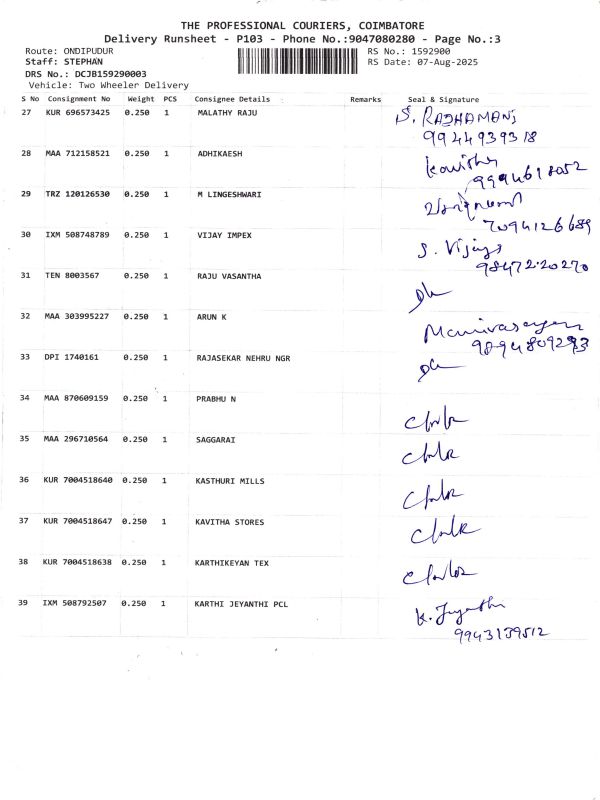 THE PROFESSIONAL COURIERS, COIMBATORE
Delivery Runsheet - P103 - Phone No.:9047080280 - Page No.:3
Route: ONDIPUDUR RS No.: 1592900
Staff: STEPHAN RS Date: 07-Aug-2025
DRS No.: DCJB159290003
Vehicle: Two Wheeler Delivery
S No Consignment No Weight PCS Consignee Details Remarks Seal & Signature
27 KUR 696573425 0.250 1 MALATHY RAJU S. RAJHAMANI
9944939318
28 MAA 712158521 0.250 1 ADHIKAESH
9994618052
29 TRZ 120126530 0.250 1 M LINGESHWARI
7094126689
30 IXM 508748789 0.250 1 VIJAY IMPEX S. Vijaya
9847220270
31 TEN 8003567 0.250 1 RAJU VASANTHA
32 MAA 303995227 0.250 1 ARUN K
9894809293
33 DPI 1740161 0.250 1 RAJASEKAR NEHRU NGR
34 MAA 870609159 0.250 1 PRABHU N
35 MAA 296710564 0.250 1 SAGGARAI
36 KUR 7004518640 0.250 1 KASTHURI MILLS
37 KUR 7004518647 0.250 1 KAVITHA STORES
38 KUR 7004518638 0.250 1 KARTHIKEYAN TEX
39 IXM 508792507 0.250 1 KARTHI JEYANTHI PCL K. Jeyanthi
9943139512